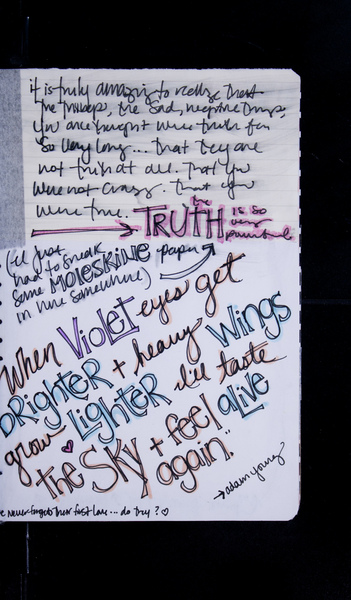 it is truly amazing to realize that
the things, the sad, negative things,
you are taught were truth for
so very long... that they are
not truth at all. that you
were not crazy. that you
were true.
the TRUTH is so
very
powerful
(i just
had to sneak
some MOLESKINE paper
in here somewhere)
When Violet eyes get
brighter + heavy Wings
grow lighter i'll taste
the SKY + feel alive
again."
→ adam young
never forgets their first love... do they? ♡